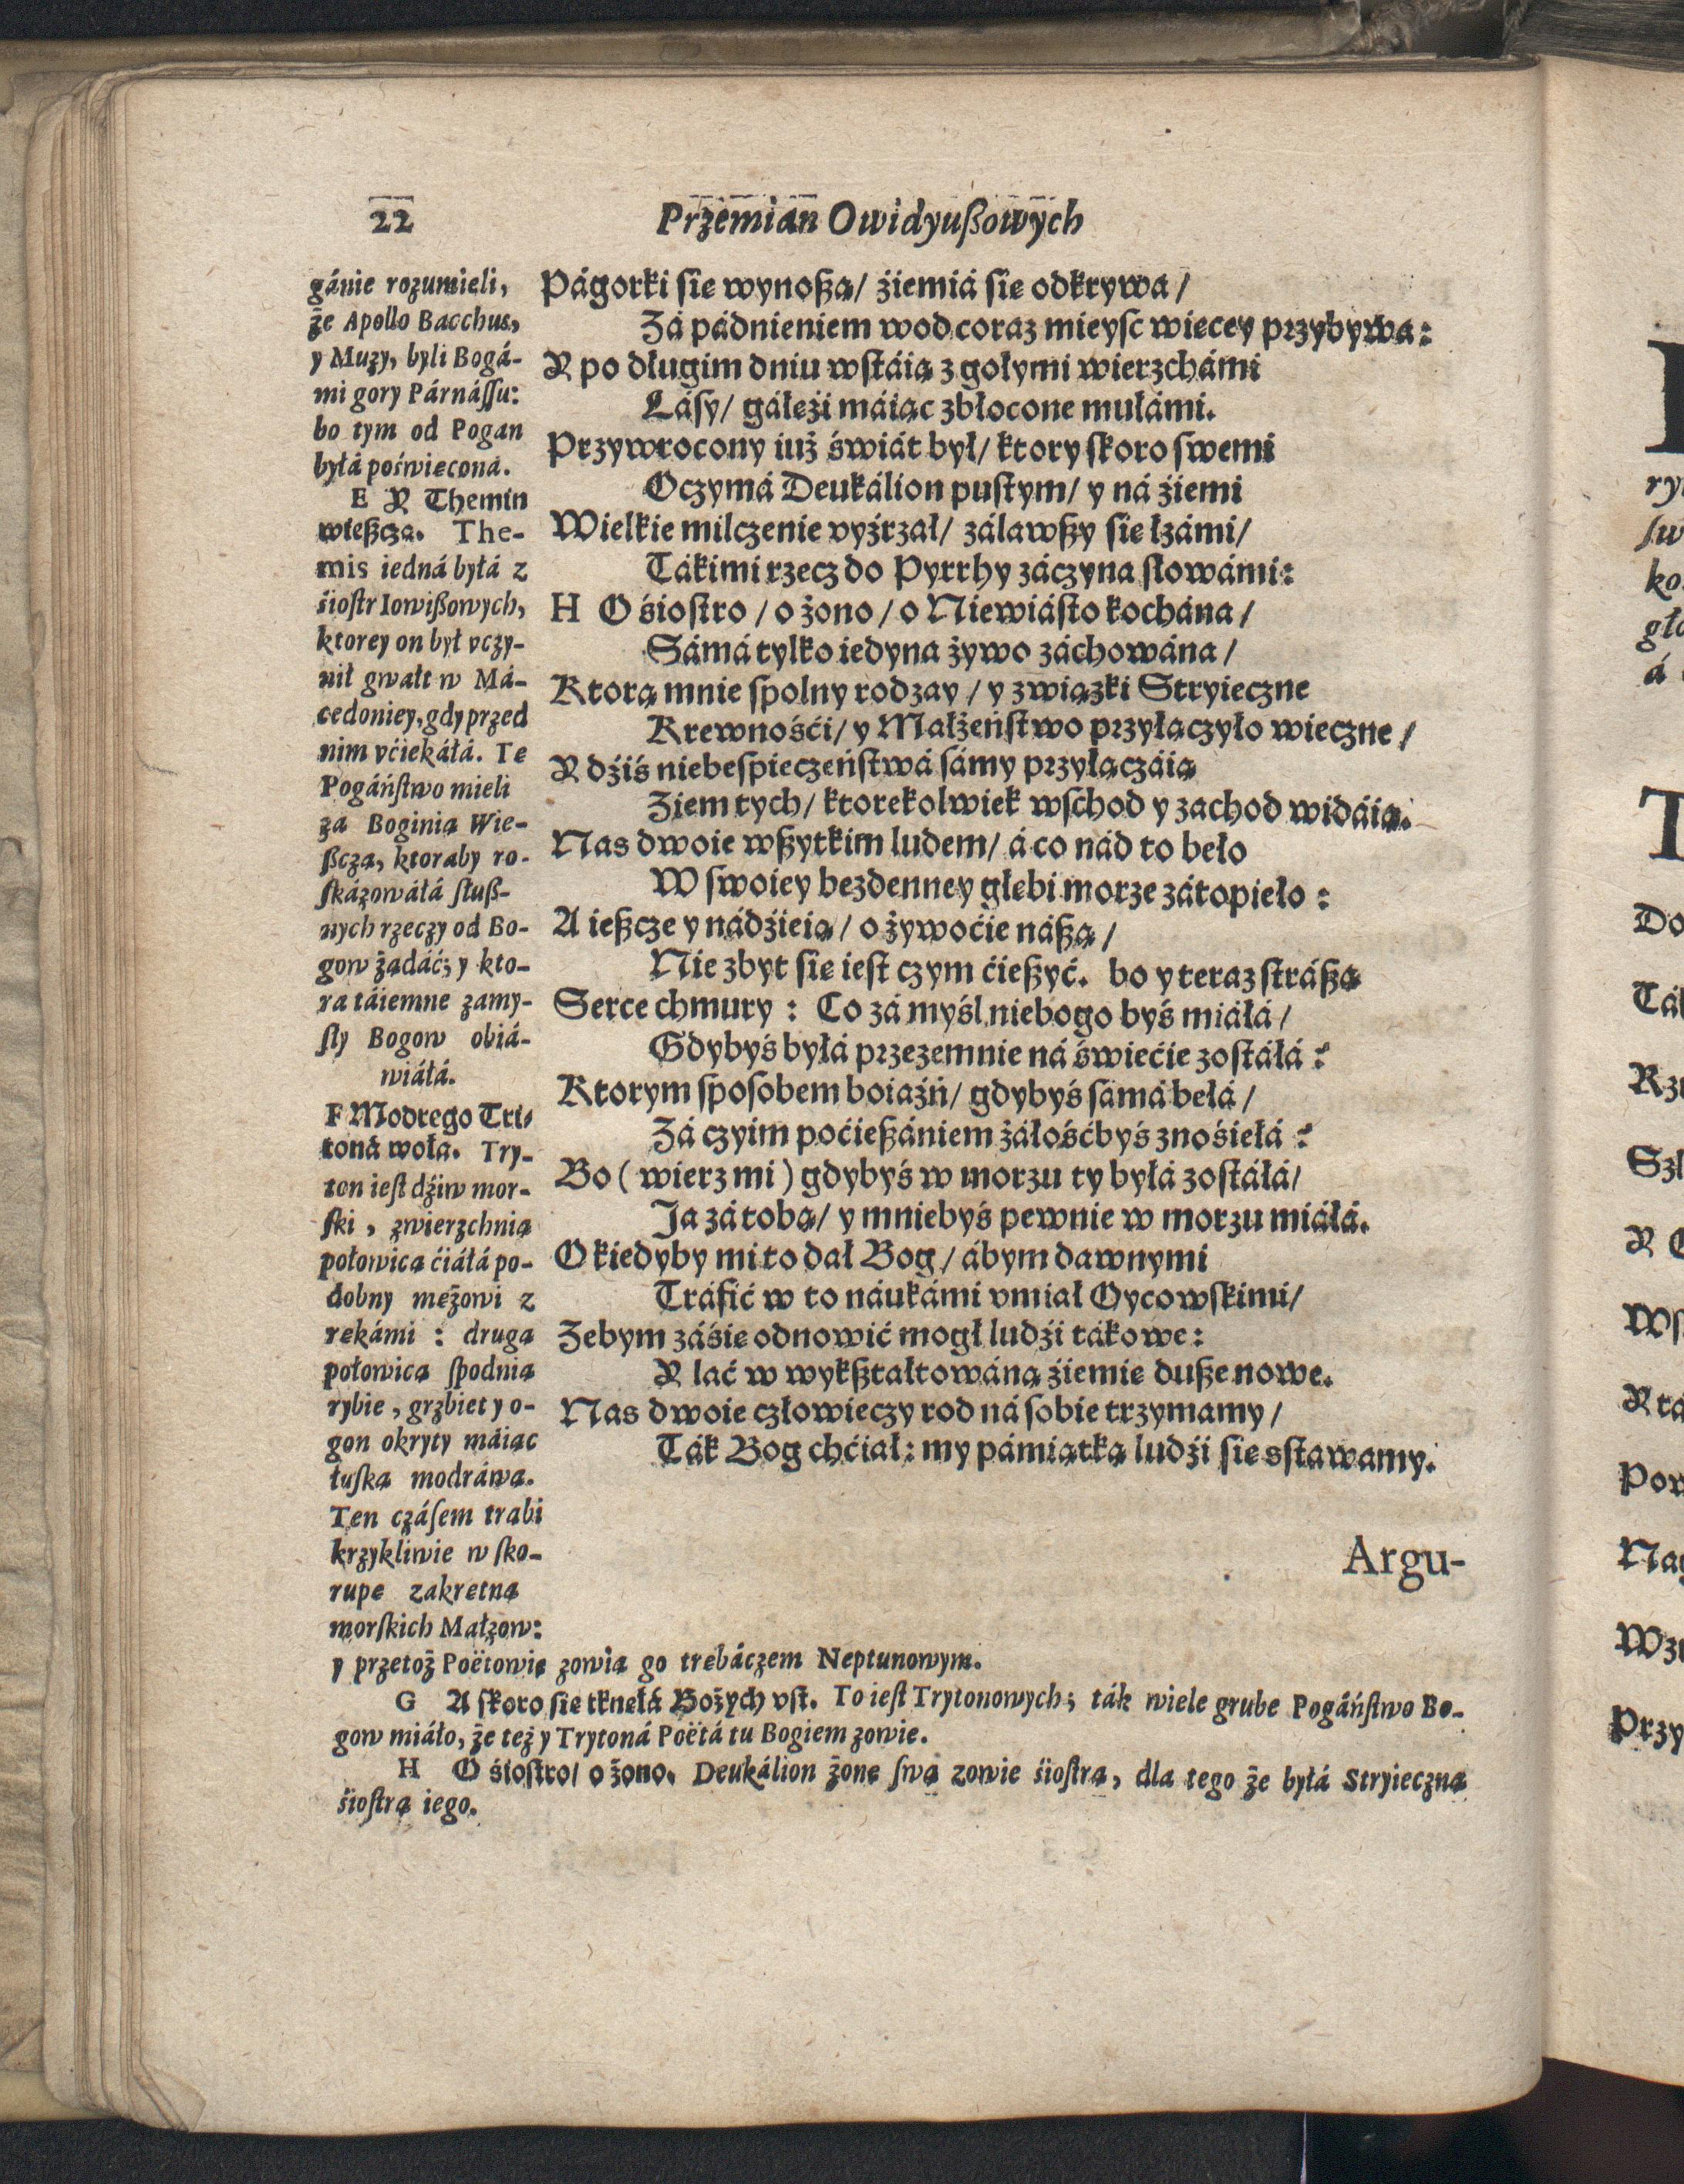 22
Przemian Owidyuſzowych
gánie rozumieli,
że Apollo Bacchus,
y Muzy, byli Bogá-
mi gory Párnáſſu:
bo tym od Pogan
byłá poświecona.
E Y Themin
wieſzcza. The-
mis iedná byłá z
śioſtr Iowiſzowych,
ktorey on był vczy-
nił gwałt w Má-
cedoniey, gdy przed
nim vćiekáłá. Te
Pogáńſtwo mieli
za Boginią Wie-
ſzczą, ktoraby ro-
ſkázowáłá ſłuſz-
nych rzeczy od Bo-
gow żądáć; y kto-
ra táiemne zamy-
ſly Bogow obiá-
wiáłá.
F Modrego Tri-
toná woła. Try-
ton ieſt dźiw mor-
ſki, zwierzchnią
połowicą ćiáłá po-
dobny mężowi z
rekámi: druga
połowicą ſpodnią
rybie, grzbiet y o-
gon okryty máiąc
łuſką modráwą.
Ten czáſem trabi
krzykliwie w ſko-
rupe zakretną
morſkich Małzow:
y przetoż Poëtowie zowią go trebáczem Neptunowym.
Págorki ſie wynoſzą/ źiemiá ſie odkrywa/
Zá pádnieniem wod coraz mieyſc wiecey przybywa:
Y po długim dniu wſtáią z gołymi wierzchámi
Láſy/ gáłeźi máiąc zbłocone mułámi.
Przywrocony iuż świát był/ ktory ſkoro ſwemi
Oczymá Deukálion puſtym/ y ná źiemi
Wielkie milczenie vyźrzał/ zálawſzy ſie łzámi/
Tákimi rzecz do Pyrrhy záczyna ſłowámi:
H O śioſtro/ o żono/ o Niewiáſto kochána/
Sámá tylko iedyna żywo záchowána/
Ktorą mnie ſpolny rodzay/ y związki Stryieczne
Krewnośći/ y Małżeńſtwo przyłączyło wieczne/
Y dźiś niebeſpieczeńſtwá ſámy przyłączáią
Ziem tych/ ktorekolwiek wſchod y zachod widáią.
Nas dwoie wſzytkim ludem/ á co nád to beło
W ſwoiey bezdenney głebi morze zátopieło:
A ieſzcze y nádźieią/ o żywoćie náſzą/
Nie zbyt ſie ieſt czym ćieſzyć. bo y teraz ſtráſzą
Serce chmury: Co zá myśl niebogo byś miáłá/
Gdybyś byłá przezemnie ná świećie zoſtáłá?
Ktorym ſpoſobem boiaźń/ gdybyś ſámá bełá/
Zá czyim poćieſzániem żáłośćbyś znośiełá?
Bo (wierz mi) gdybyś w morzu ty byłá zoſtáłá/
Ja zá tobą/ y mniebyś pewnie w morzu miáłá.
O kiedyby mi to dał Bog/ ábym dawnymi
Tráfić w to náukámi vmiał Oycowſkimi/
Zebym záśie odnowić mogł ludźi tákowe:
Y lać w wykſztałtowáną źiemie duſze nowe.
Nas dwoie człowieczy rod ná ſobie trzymamy/
Ták Bog chćiał: my pámiątką ludźi ſie sſtawamy.
Argu-
G A ſkoro ſie tknełá Bożych vſt. To ieſt Trytonowych; ták wiele grube Pogáńſtwo Bo-
gow miáło, że też y Trytoná Poëtá tu Bogiem zowie.
H O śioſtro/ o żono. Deukálion żone ſwą zowie śioſtrą, dla tego że byłá Stryieczną
śioſtrą iego.